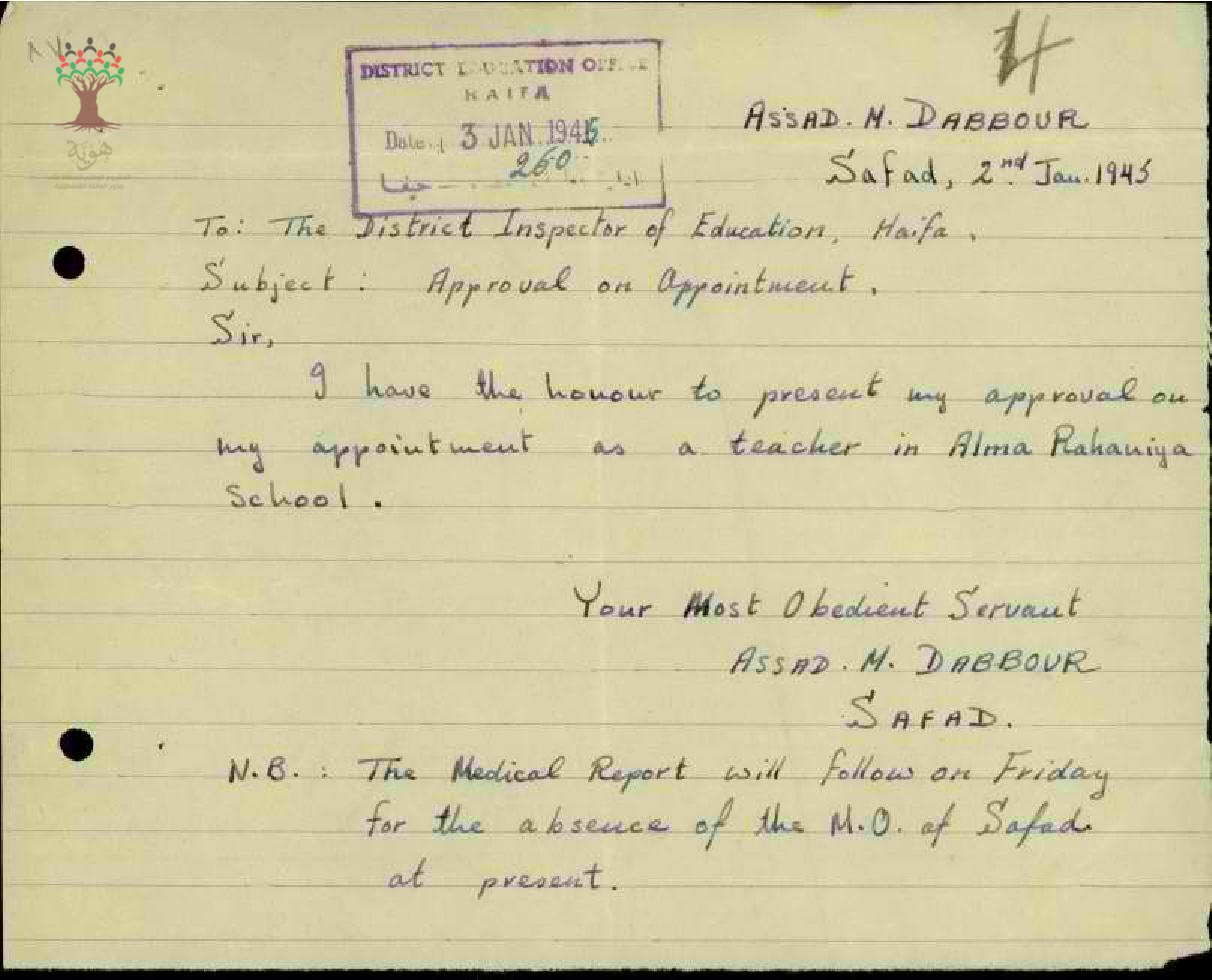 4
DISTRICT EDUCATION OFFICE
HAIFA
Date: 3 JAN 1945
260
حيفا
ASSAD. M. DABBOUR
Safad, 2nd Jan. 1945
To: The District Inspector of Education, Haifa.
Subject: Approval on Appointment.
Sir,
I have the honour to present my approval on
my appointment as a teacher in Alma Rahaniya
School.
Your Most Obedient Servant
ASSAD. M. DABBOUR
SAFAD.
N.B.: The Medical Report will follow on Friday
for the absence of the M.O. of Safad
at present.
هوية